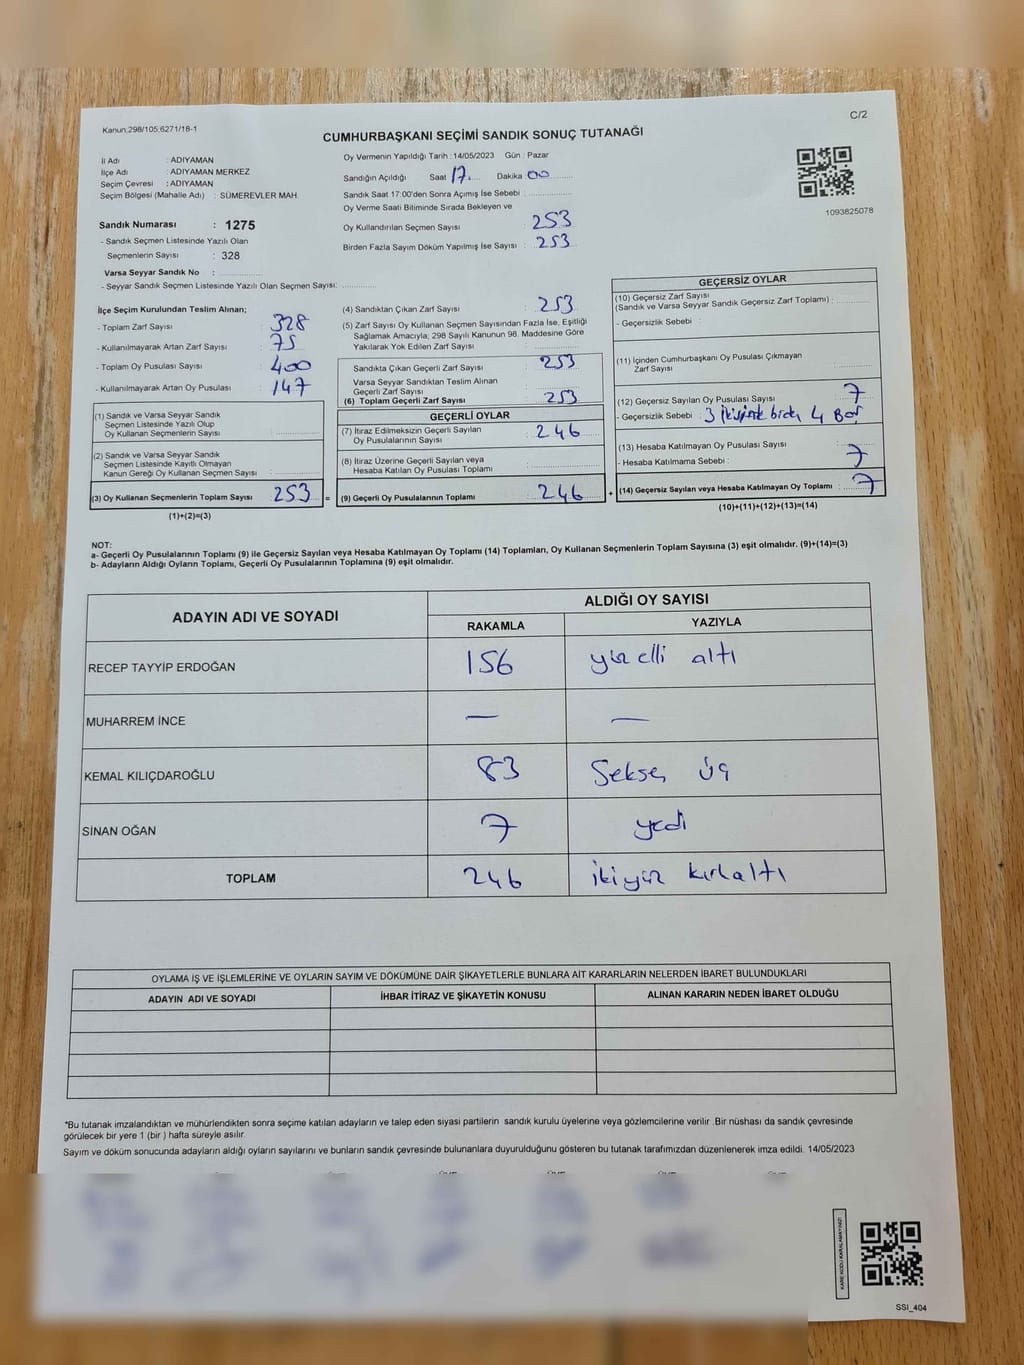 Kanun;298/105;6271/18-1
C/2
CUMHURBAŞKANI SEÇİMİ SANDIK SONUÇ TUTANAĞI
İl Adı : ADIYAMAN
İlçe Adı : ADIYAMAN MERKEZ
Seçim Çevresi : ADIYAMAN
Seçim Bölgesi (Mahalle Adı) : SÜMEREVLER MAH.
Sandık Numarası : 1275
- Sandık Seçmen Listesinde Yazılı Olan
Seçmenlerin Sayısı : 328
Varsa Seyyar Sandık No :
- Seyyar Sandık Seçmen Listesinde Yazılı Olan Seçmen Sayısı:
Oy Vermenin Yapıldığı Tarih :14/05/2023 Gün : Pazar
Sandığın Açıldığı Saat 17 Dakika 00
Sandık Saat 17:00'den Sonra Açımış İse Sebebi :
Oy Verme Saati Bitiminde Sırada Bekleyen ve
Oy Kullandırılan Seçmen Sayısı : 253
Birden Fazla Sayım Döküm Yapılmış İse Sayısı : 253
1093825078
İlçe Seçim Kurulundan Teslim Alınan;
- Toplam Zarf Sayısı : 328
- Kullanılmayarak Artan Zarf Sayısı : 75
- Toplam Oy Pusulası Sayısı : 400
- Kullanılmayarak Artan Oy Pusulası : 147
(1) Sandık ve Varsa Seyyar Sandık
Seçmen Listesinde Yazılı Olup
Oy Kullanan Seçmenlerin Sayısı :
(2) Sandık ve Varsa Seyyar Sandık
Seçmen Listesinde Kayıtlı Olmayan
Kanun Gereği Oy Kullanan Seçmen Sayısı :
(3) Oy Kullanan Seçmenlerin Toplam Sayısı : 253 =
(1)+(2)=(3)
(4) Sandıktan Çıkan Zarf Sayısı : 253
(5) Zarf Sayısı Oy Kullanan Seçmen Sayısından Fazla İse, Eşitliği
Sağlamak Amacıyla; 298 Sayılı Kanunun 98. Maddesine Göre
Yakılarak Yok Edilen Zarf Sayısı :
Sandıkta Çıkan Geçerli Zarf Sayısı : 253
Varsa Seyyar Sandıktan Teslim Alınan
Geçerli Zarf Sayısı :
(6) Toplam Geçerli Zarf Sayısı : 253
GEÇERLİ OYLAR
(7) İtiraz Edilmeksizin Geçerli Sayılan
Oy Pusulasının Sayısı : 246
(8) İtiraz Üzerine Geçerli Sayılan veya
Hesaba Katılan Oy Pusulası Toplamı :
(9) Geçerli Oy Pusulalarının Toplamı : 246 +
GEÇERSİZ OYLAR
(10) Geçersiz Zarf Sayısı
(Sandık ve Varsa Seyyar Sandık Geçersiz Zarf Toplamı) :
- Geçersizlik Sebebi :
(11) İçinden Cumhurbaşkanı Oy Pusulası Çıkmayan
Zarf Sayısı :
(12) Geçersiz Sayılan Oy Pusulası Sayısı : 7
- Geçersizlik Sebebi : 3 4 Boş
(13) Hesaba Katılmayan Oy Pusulası Sayısı :
- Hesaba Katılmama Sebebi : 7
(14) Geçersiz Sayılan veya Hesaba Katılmayan Oy Toplamı : 7
(10)+(11)+(12)+(13)=(14)
NOT:
a- Geçerli Oy Pusulalarının Toplamı (9) ile Geçersiz Sayılan veya Hesaba Katılmayan Oy Toplamı (14) Toplamları, Oy Kullanan Seçmenlerin Toplam Sayısına (3) eşit olmalıdır. (9)+(14)=(3)
b- Adayların Aldığı Oyların Toplamı, Geçerli Oy Pusulalarının Toplamına (9) eşit olmalıdır.
ADAYIN ADI VE SOYADI
ALDIĞI OY SAYISI
RAKAMLA YAZIYLA
RECEP TAYYİP ERDOĞAN 156 yüz elli altı
MUHARREM İNCE — —
KEMAL KILIÇDAROĞLU 83 Seksen üç
SİNAN OĞAN 7 yedi
TOPLAM 246 ikiyüz kırkaltı
OYLAMA İŞ VE İŞLEMLERİNE VE OYLARIN SAYIM VE DÖKÜMÜNE DAİR ŞİKAYETLERLE BUNLARA AİT KARARLARIN NELERDEN İBARET BULUNDUKLARI
ADAYIN ADI VE SOYADI İHBAR İTİRAZ VE ŞİKAYETİN KONUSU ALINAN KARARIN NEDEN İBARET OLDUĞU
*Bu tutanak imzalandıktan ve mühürlendikten sonra seçime katılan adayların ve talep eden siyasi partilerin sandık kurulu üyelerine veya gözlemcilerine verilir .Bir nüshası da sandık çevresinde
görülecek bir yere 1 (bir ) hafta süreyle asılır.
Sayım ve döküm sonucunda adayların aldığı oyların sayılarını ve bunların sandık çevresinde bulunanlara duyurulduğunu gösteren bu tutanak tarafımızdan düzenlenerek imza edildi. 14/05/2023
KARE KODU KARALAMAYINIZ!
SSI_404